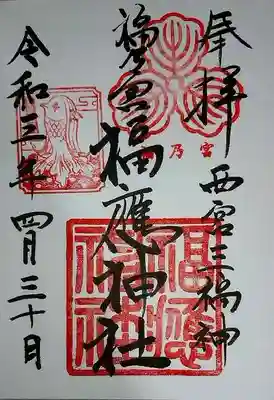 奉拝
西宮三福神
福應神社
令和三年四月三十日
乃宮
福應神社